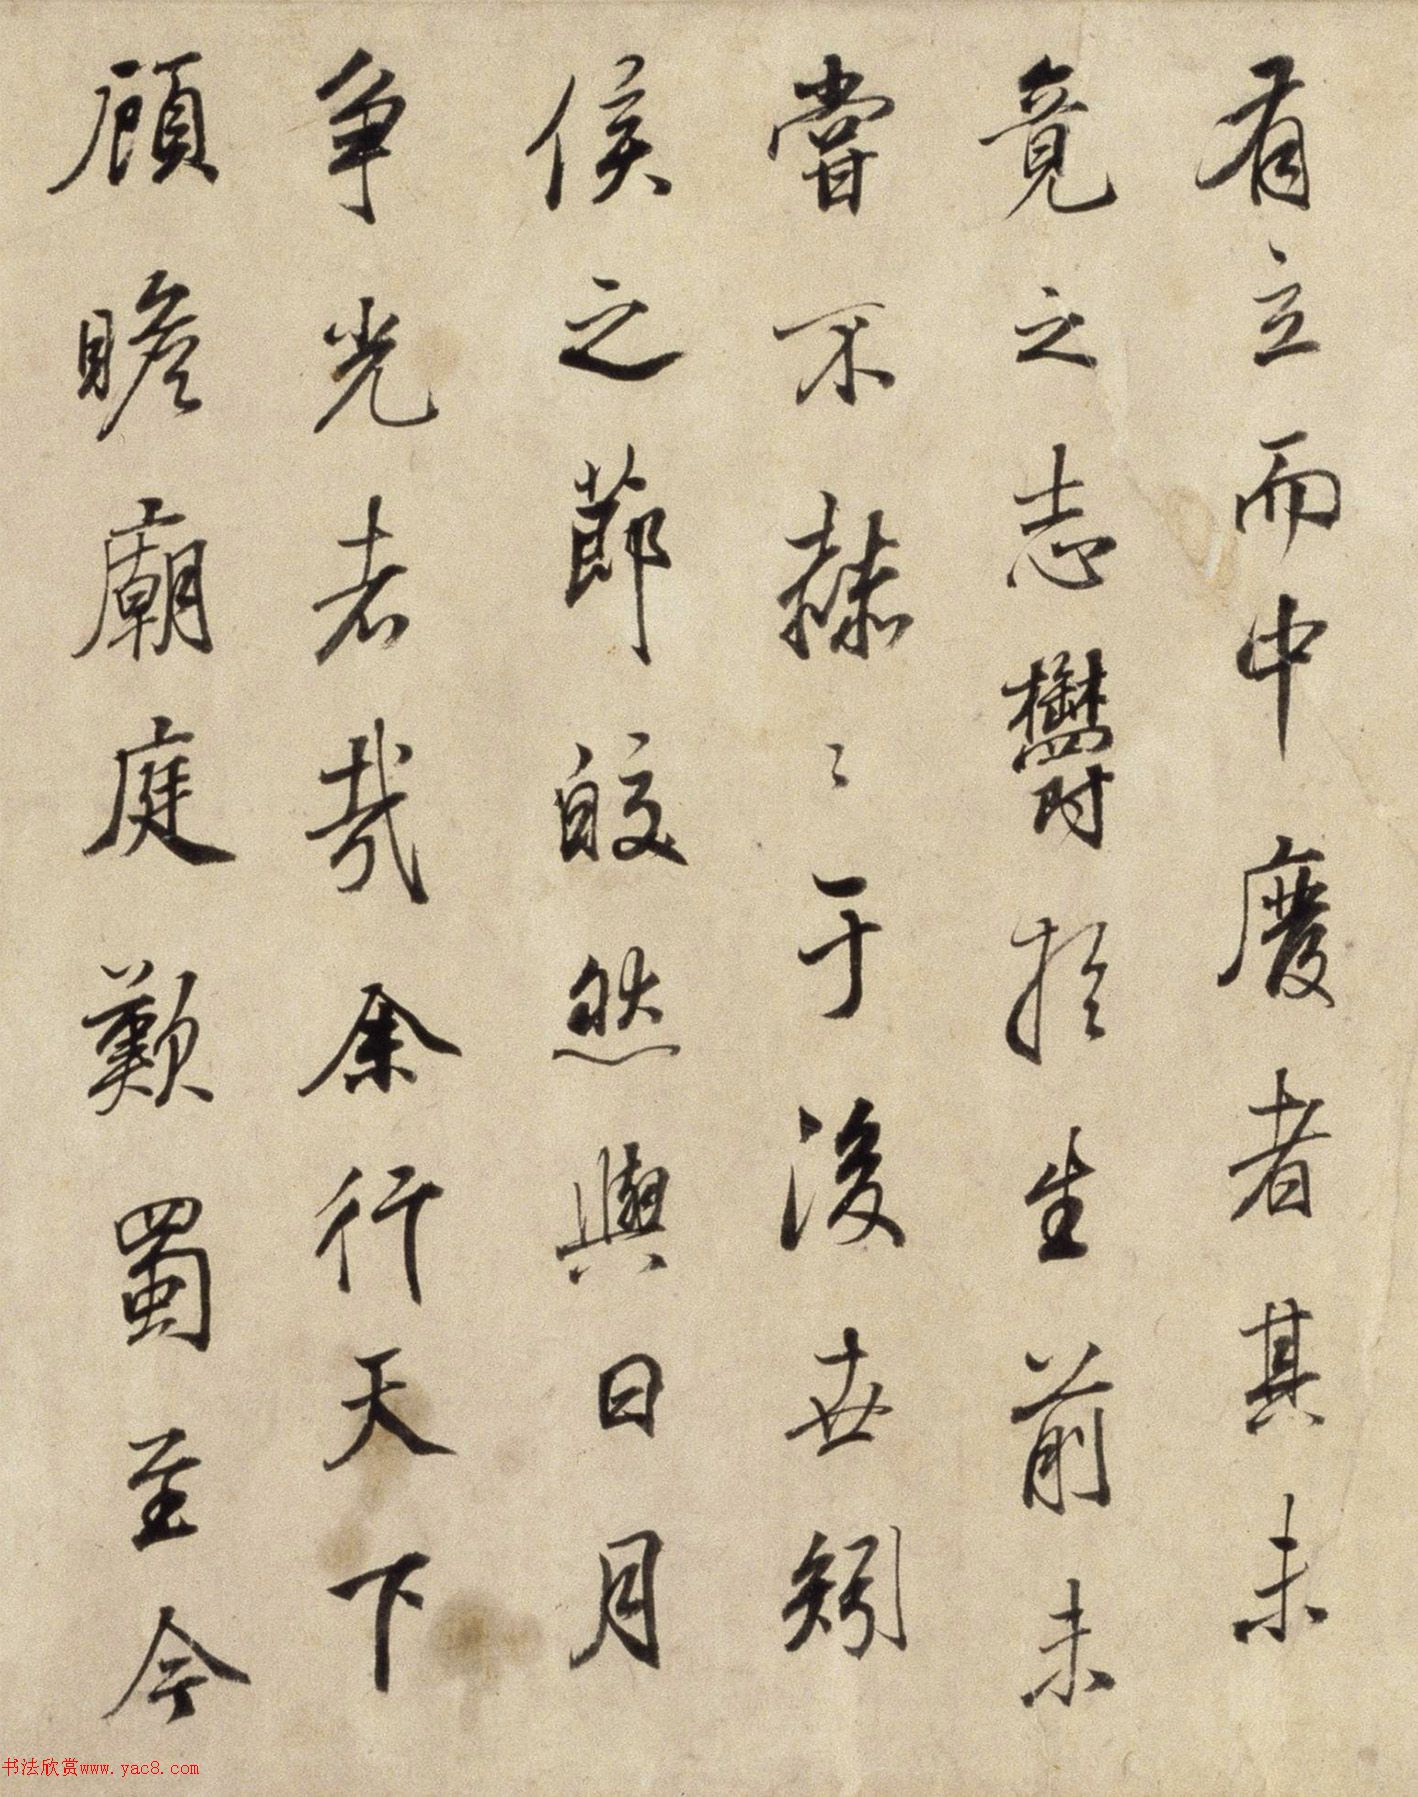 有立而中廢者其未
竟之志鬱於生前未
嘗不赫〻于後世矧
侯之節皎然與日月
争光者哉余行天下
顧瞻廟庭歎蜀至今
书法欣赏www.yac8.com